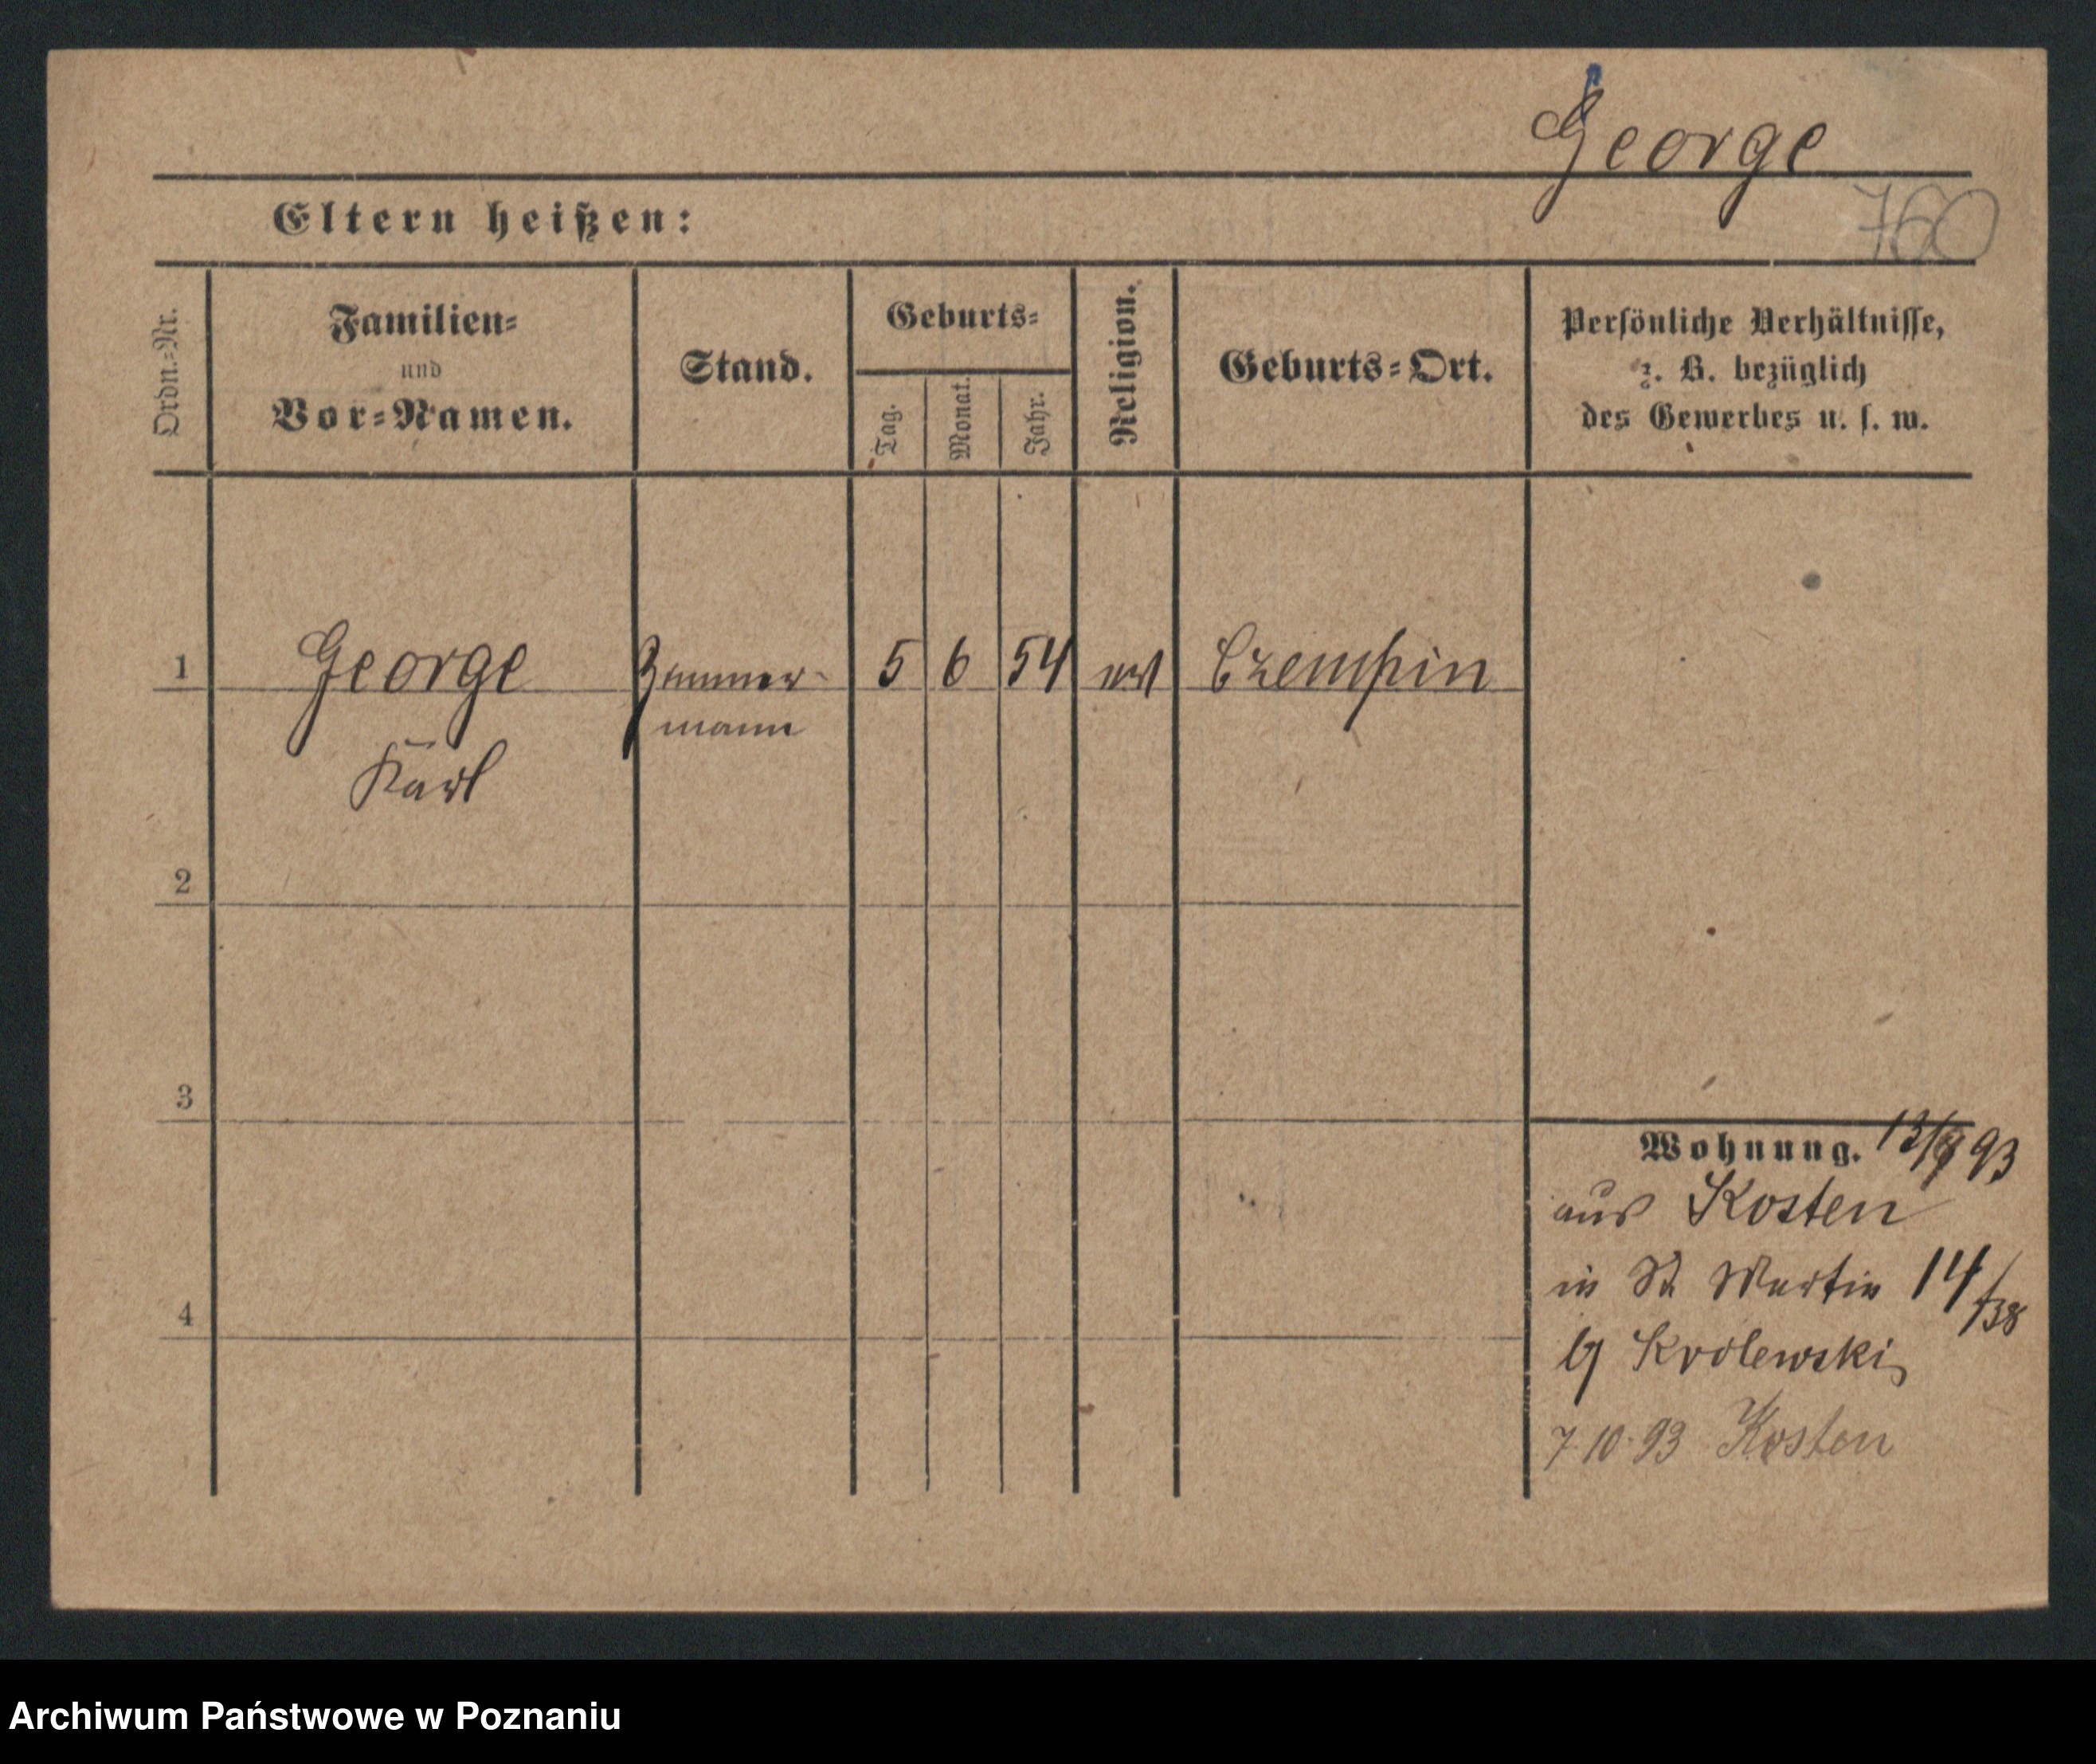 George
Eltern heißen:
760
Ordn.=Nr.
Familien=
und
Vor=Namen.
Stand.
Geburts=
Tag.
Monat.
Jahr.
Religion.
Geburts=Ort.
Persönliche Verhältnisse,
z. B. bezüglich
des Gewerbes u. s. w.
1 George Zimmer- 5 6 54 Czempin
mann
Karl
2
3
4
Wohnung. 93
aus Kosten
in St Martin 14/38
Krolewski
7 10 93 Kosten
Archiwum Państwowe w Poznaniu